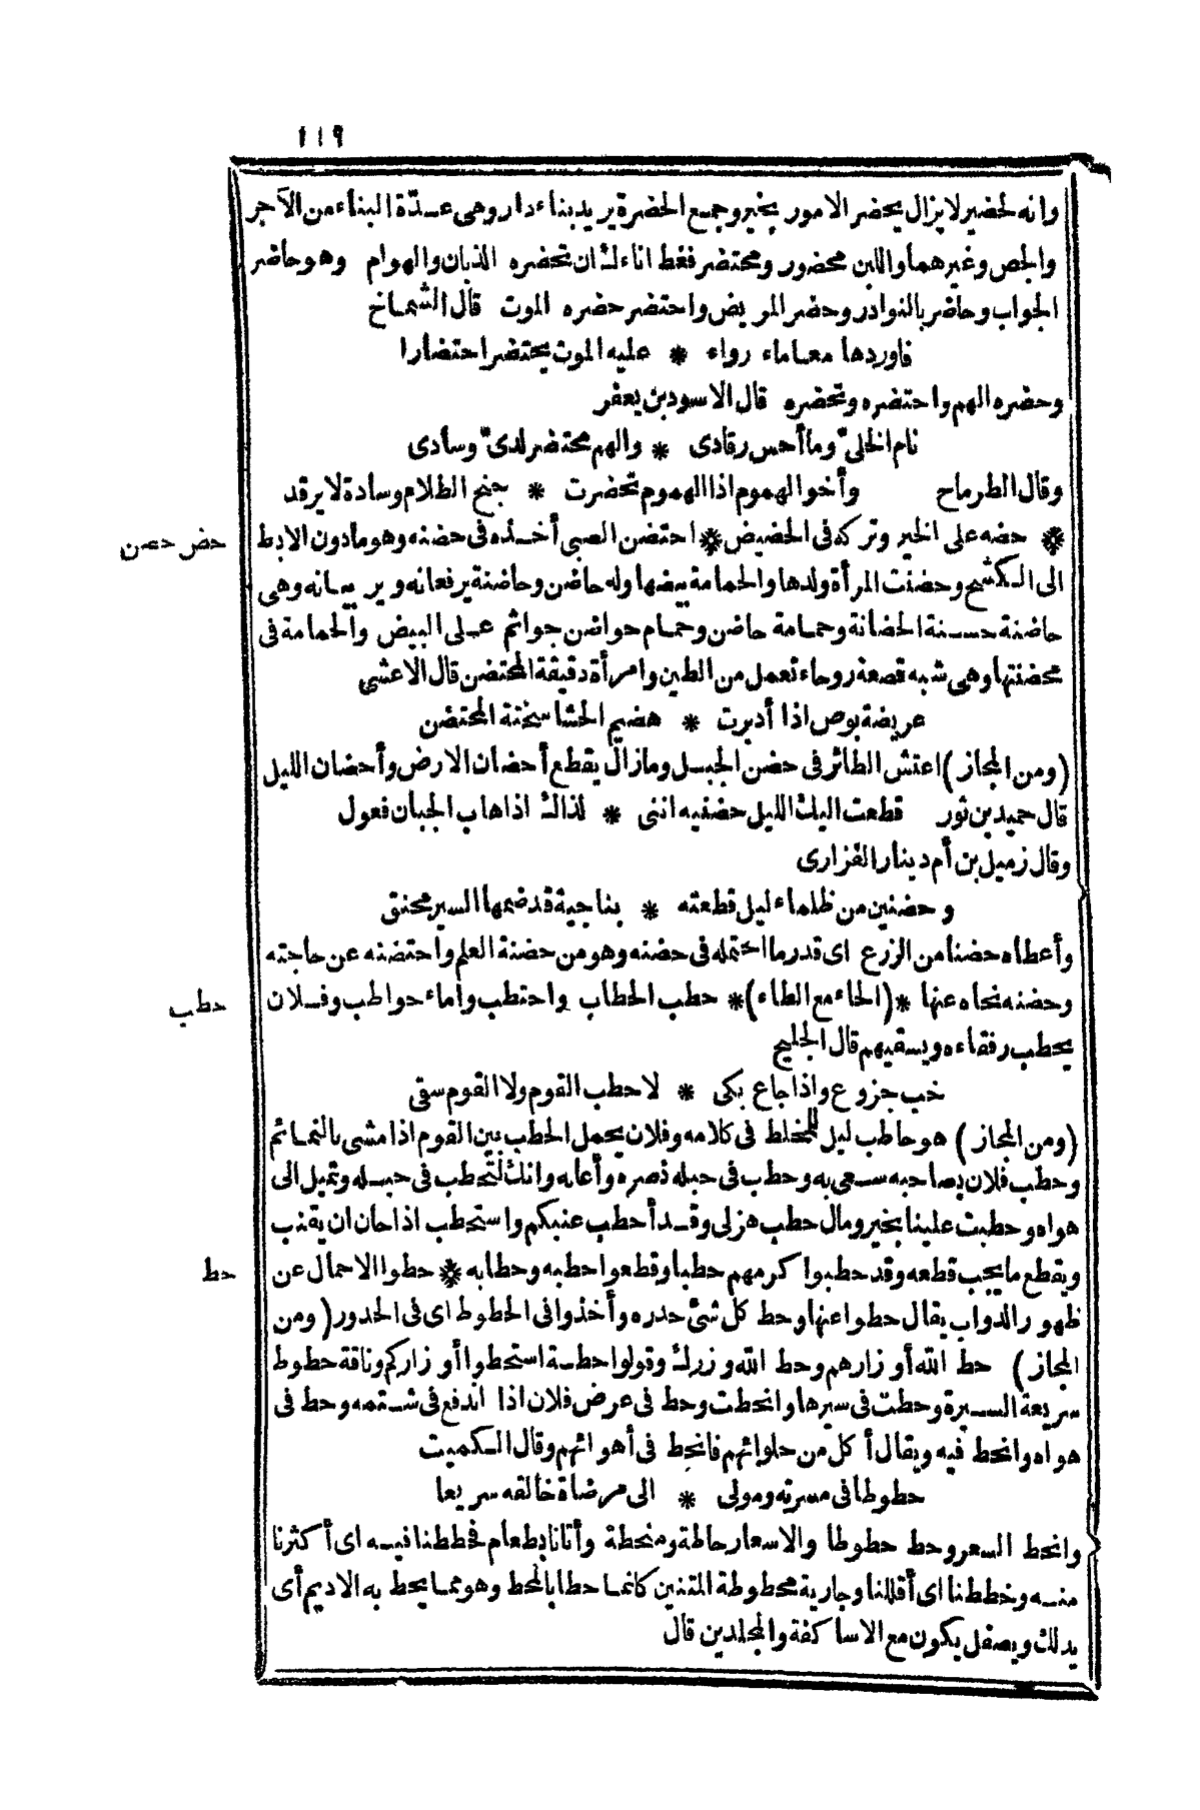 ١١٩
وانه لحضير لا يزال يحضر الامور بخير وجمع الحضرة يريد بناء دار وهى عدّة البناء من الآجر
والجص وغيرهما واللبن محضور ومحتضر فغط اناءك ان تحضره الذبان والهوام وهو حاضر
الجواب وحاضر بالنوادر وحضر المريض واحتضر حضره الموت قال الشماخ
فاوردها معا ماء رواء * عليه الموت يحتضر احتضارا
وحضره الهم واحتضره وتحضره قال الاسود بن يعفر
نام الخلىّ وما أحس رقادى * والهم محتضر لدىّ وسادى
وقال الطرماح وأخو الهموم اذا الهموم تحضرت * جنح الظلام وساده لا يرقد
* حضه على الخير وتركه فى الحضيض * احتضن الصبى أخذه فى حضنه وهو مادون الابط
حضض حضن
الى الكشح وحضنت المرأة ولدها والحمامة بيضها وله حاضن وحاضنة يرفعانه ويربيانه وهى
حاضنة حسنة الحضانة وحمامة حاضن وحمام حواضن جواثم على البيض والحمامة فى
محضنتها وهى شبه قصعة روحاء تعمل من الطين وامرأة دقيقة المحتضن قال الاعشى
عريضة بوص اذا أدبرت * هضيم الحشا سختة المحتضن
(ومن المجاز) اعتش الطائر فى حضن الجبل وما زال يقطع أحضان الارض وأحضان الليل
قال حميد بن ثور قطعت اليك الليل حضنيه اننى * لذاك اذا هاب الجبان فعول
وقال زميل بن أم دينار الفزارى
وحضنين من ظلماء ليل قطعته * بناجية قد ضمها السير محنق
وأعطاه حضنا من الزرع اى قدر ما احتمله فى حضنه وهو من حضنة العلم واحتضنه عن حاجته
وحضنه نحاه عنها *(الحاء مع الطاء)* حطب الحطاب واحتطب واماء حواطب وفلان
حطب
يحطب رفقاءه ويسقيهم قال الجليح
خب جزوع واذا جاع بكى * لا حطب القوم ولا القوم سقى
(ومن المجاز) هو حاطب ليل للمخلط فى كلامه وفلان يحمل الحطب بين القوم اذا مشى بالنمائم
وحطب فلان بصاحبه سعى به وحطب فى حبله نصره وأعانه وانك لتحطب فى حبله وتميل الى
هواه وحطبت علينا بخير ومال حطب هزلى وقد أحطب عنبكم واستحطب اذا حان ان يقنب
ويقطع ما يجب قطعه وقد حطبوا كرمهم حطبا وقطعوا حطبه وحطابه * حطوا الاحمال عن
حط
ظهور الدواب يقال حطوا عنها وحط كل شئ حدره وأخذوا فى الحطوط اى فى الحدور (ومن
المجاز) حط الله أوزارهم وحط الله وزرك وقولوا حطة استحطوا أوزاركم وناقة حطوط
سريعة السيرة وحطت فى سيرها وانحطت وحط فى عرض فلان اذا اندفع فى شتمه وحط فى
هواه وانحط فيه ويقال أكل من حلوائهم فانحط فى أهوائهم وقال الكميت
حطوطا فى مسرته ومولى * الى مرضاة خالقه سريعا
وانحط السعر وحط حطوطا والاسعار حاطة ومنحطة وأتانا بطعام فحططنا فيه اى أكثرنا
منه وخططنا اى أقللنا وجارية محطوطة المتنين كانما حطا بالمحط وهو مما يحط به الاديم أى
يدلك ويصقل يكون مع الاساكفة والمجلدين قال